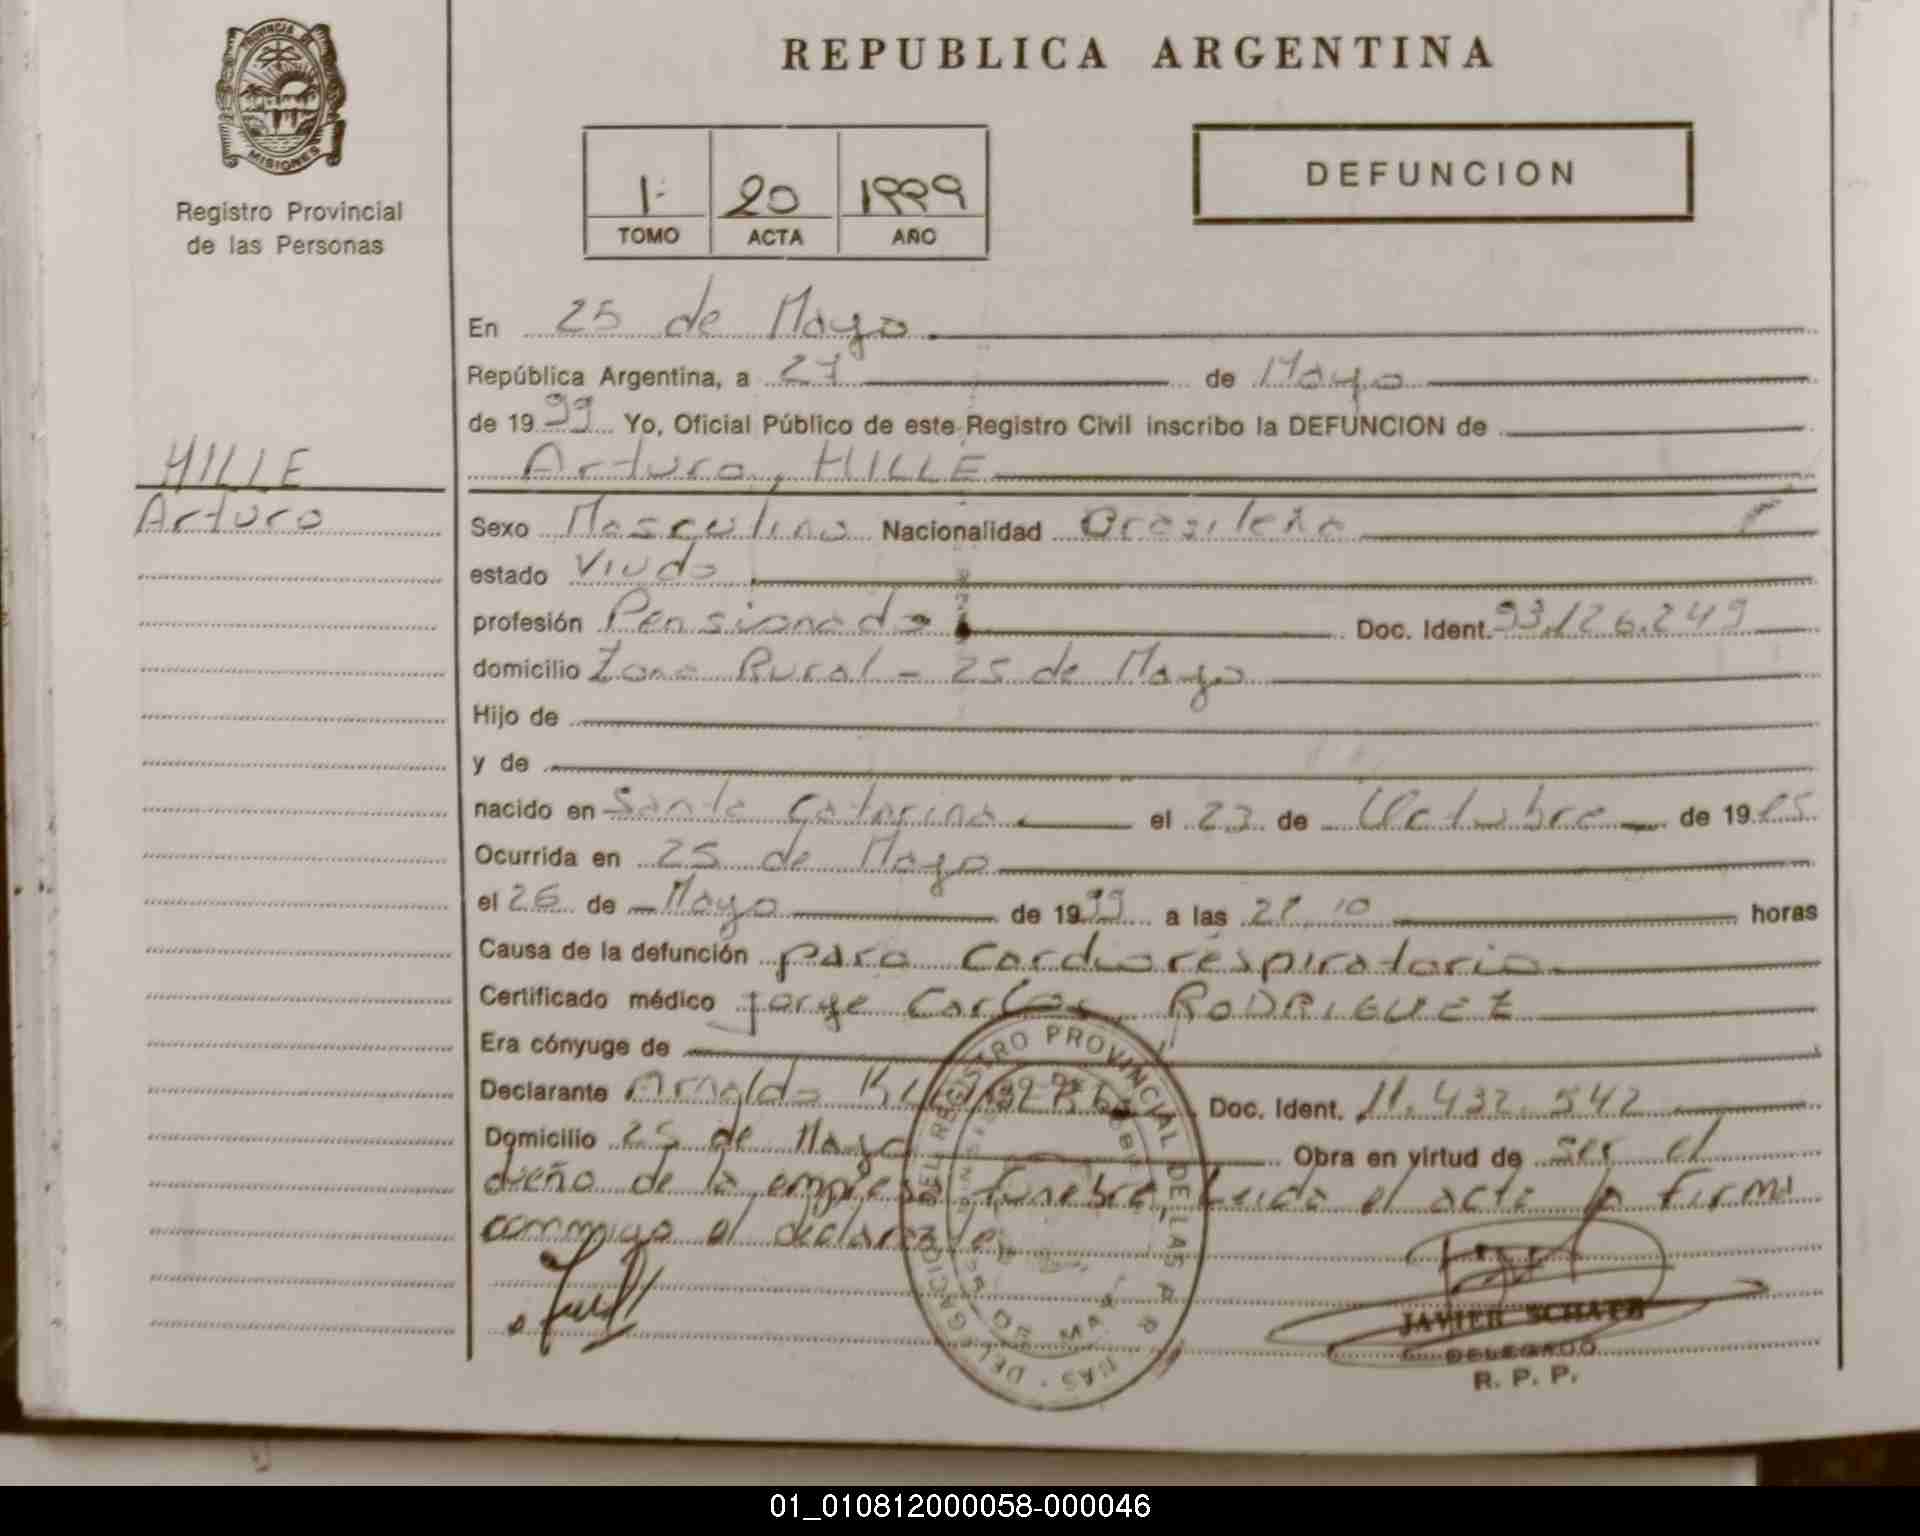 PROVINCIA DE
MISIONES
Registro Provincial
de las Personas
REPUBLICA ARGENTINA
1- 20 1999
TOMO ACTA AÑO
DEFUNCION
En 25 de Mayo
República Argentina, a 27 de Mayo
de 1999 Yo, Oficial Público de este Registro Civil inscribo la DEFUNCION de
HILLE
Arturo, HILLE
Arturo
Sexo Masculino Nacionalidad Brasileña
estado Viudo
profesión Pensionado Doc. Ident. 93.126.249
domicilio Zona Rural - 25 de Mayo
Hijo de
y de
nacido en Santa Catarina el 23 de Octubre de 19
Ocurrida en 25 de Mayo
el 26 de Mayo de 1999 a las horas
Causa de la defunción paro Cardiorespiratorio
Certificado médico Jorge Carlos RODRIGUEZ
Era cónyuge de
Declarante Arnaldo Doc. Ident. 11.432.542
Domicilio 25 de Mayo Obra en virtud de ser el
dueño de la empresa funebre, Leida el acta la firma
conmigo el declarante
REGISTRO PROVINCIAL DE LAS
DELEGACION
DE MAY
JAVIER SCHATZ
DELEGADO
R. P. P.
01_010812000058-000046